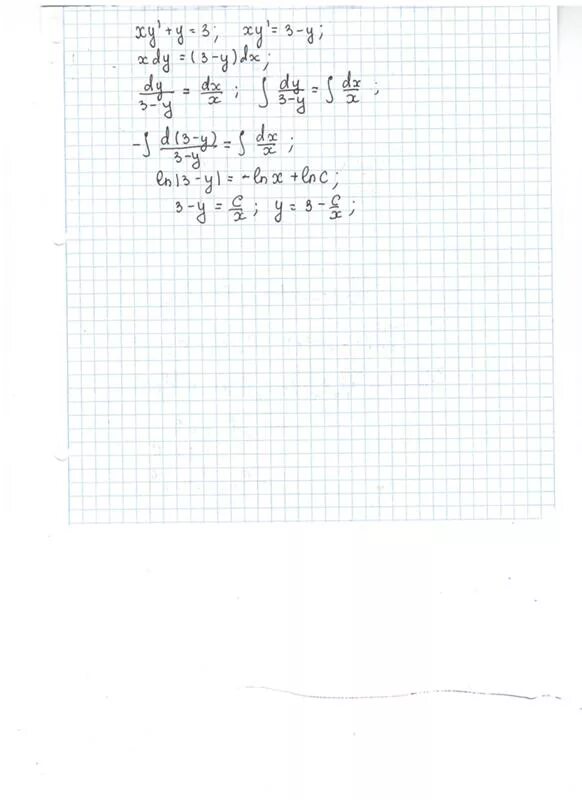 xy' + y = 3; xy' = 3-y;
x dy = (3-y)dx;
dy/(3-y) = dx/x; ∫ dy/(3-y) = ∫ dx/x;
-∫ d(3-y)/(3-y) = ∫ dx/x;
ln|3-y| = -ln x + ln c;
3-y = c/x; y = 3 - c/x;